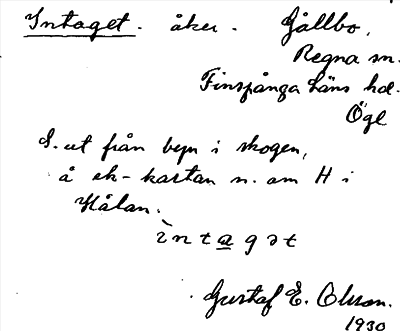 Intaget. åker. Gällbo,
Regna sn.
Finspånga läns hd.
Ögl
S. ut från byn i skogen,
å ek-kartan n. om H i
Hålan.
ìntag̲ət
Gustaf E. Olsson.
1930